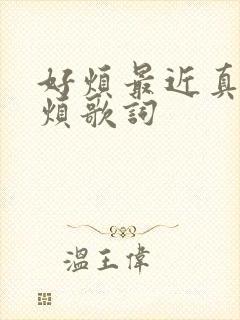 好煩最近真
煩歌詞
溫王偉